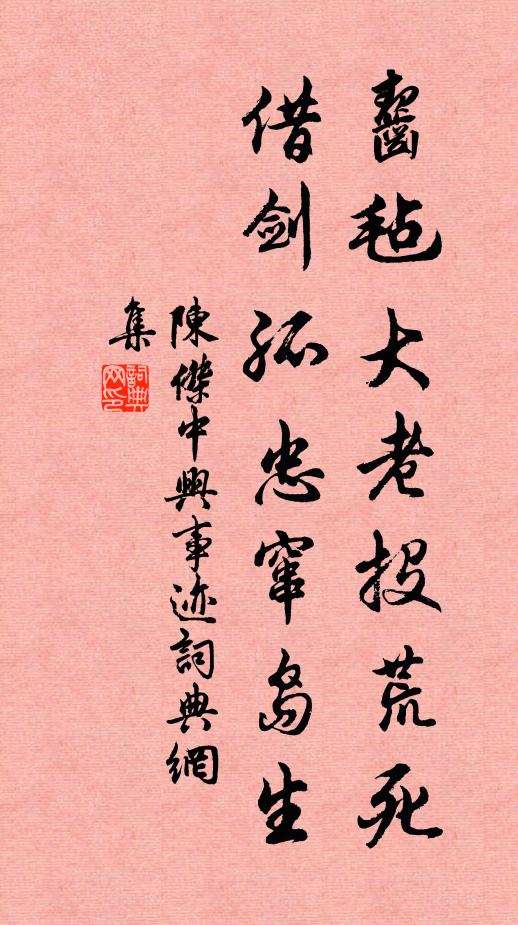 齧毡大老投荒死
借剑孤忠窜岛生
陳傑中興事迹詞典網
集
詞典网印